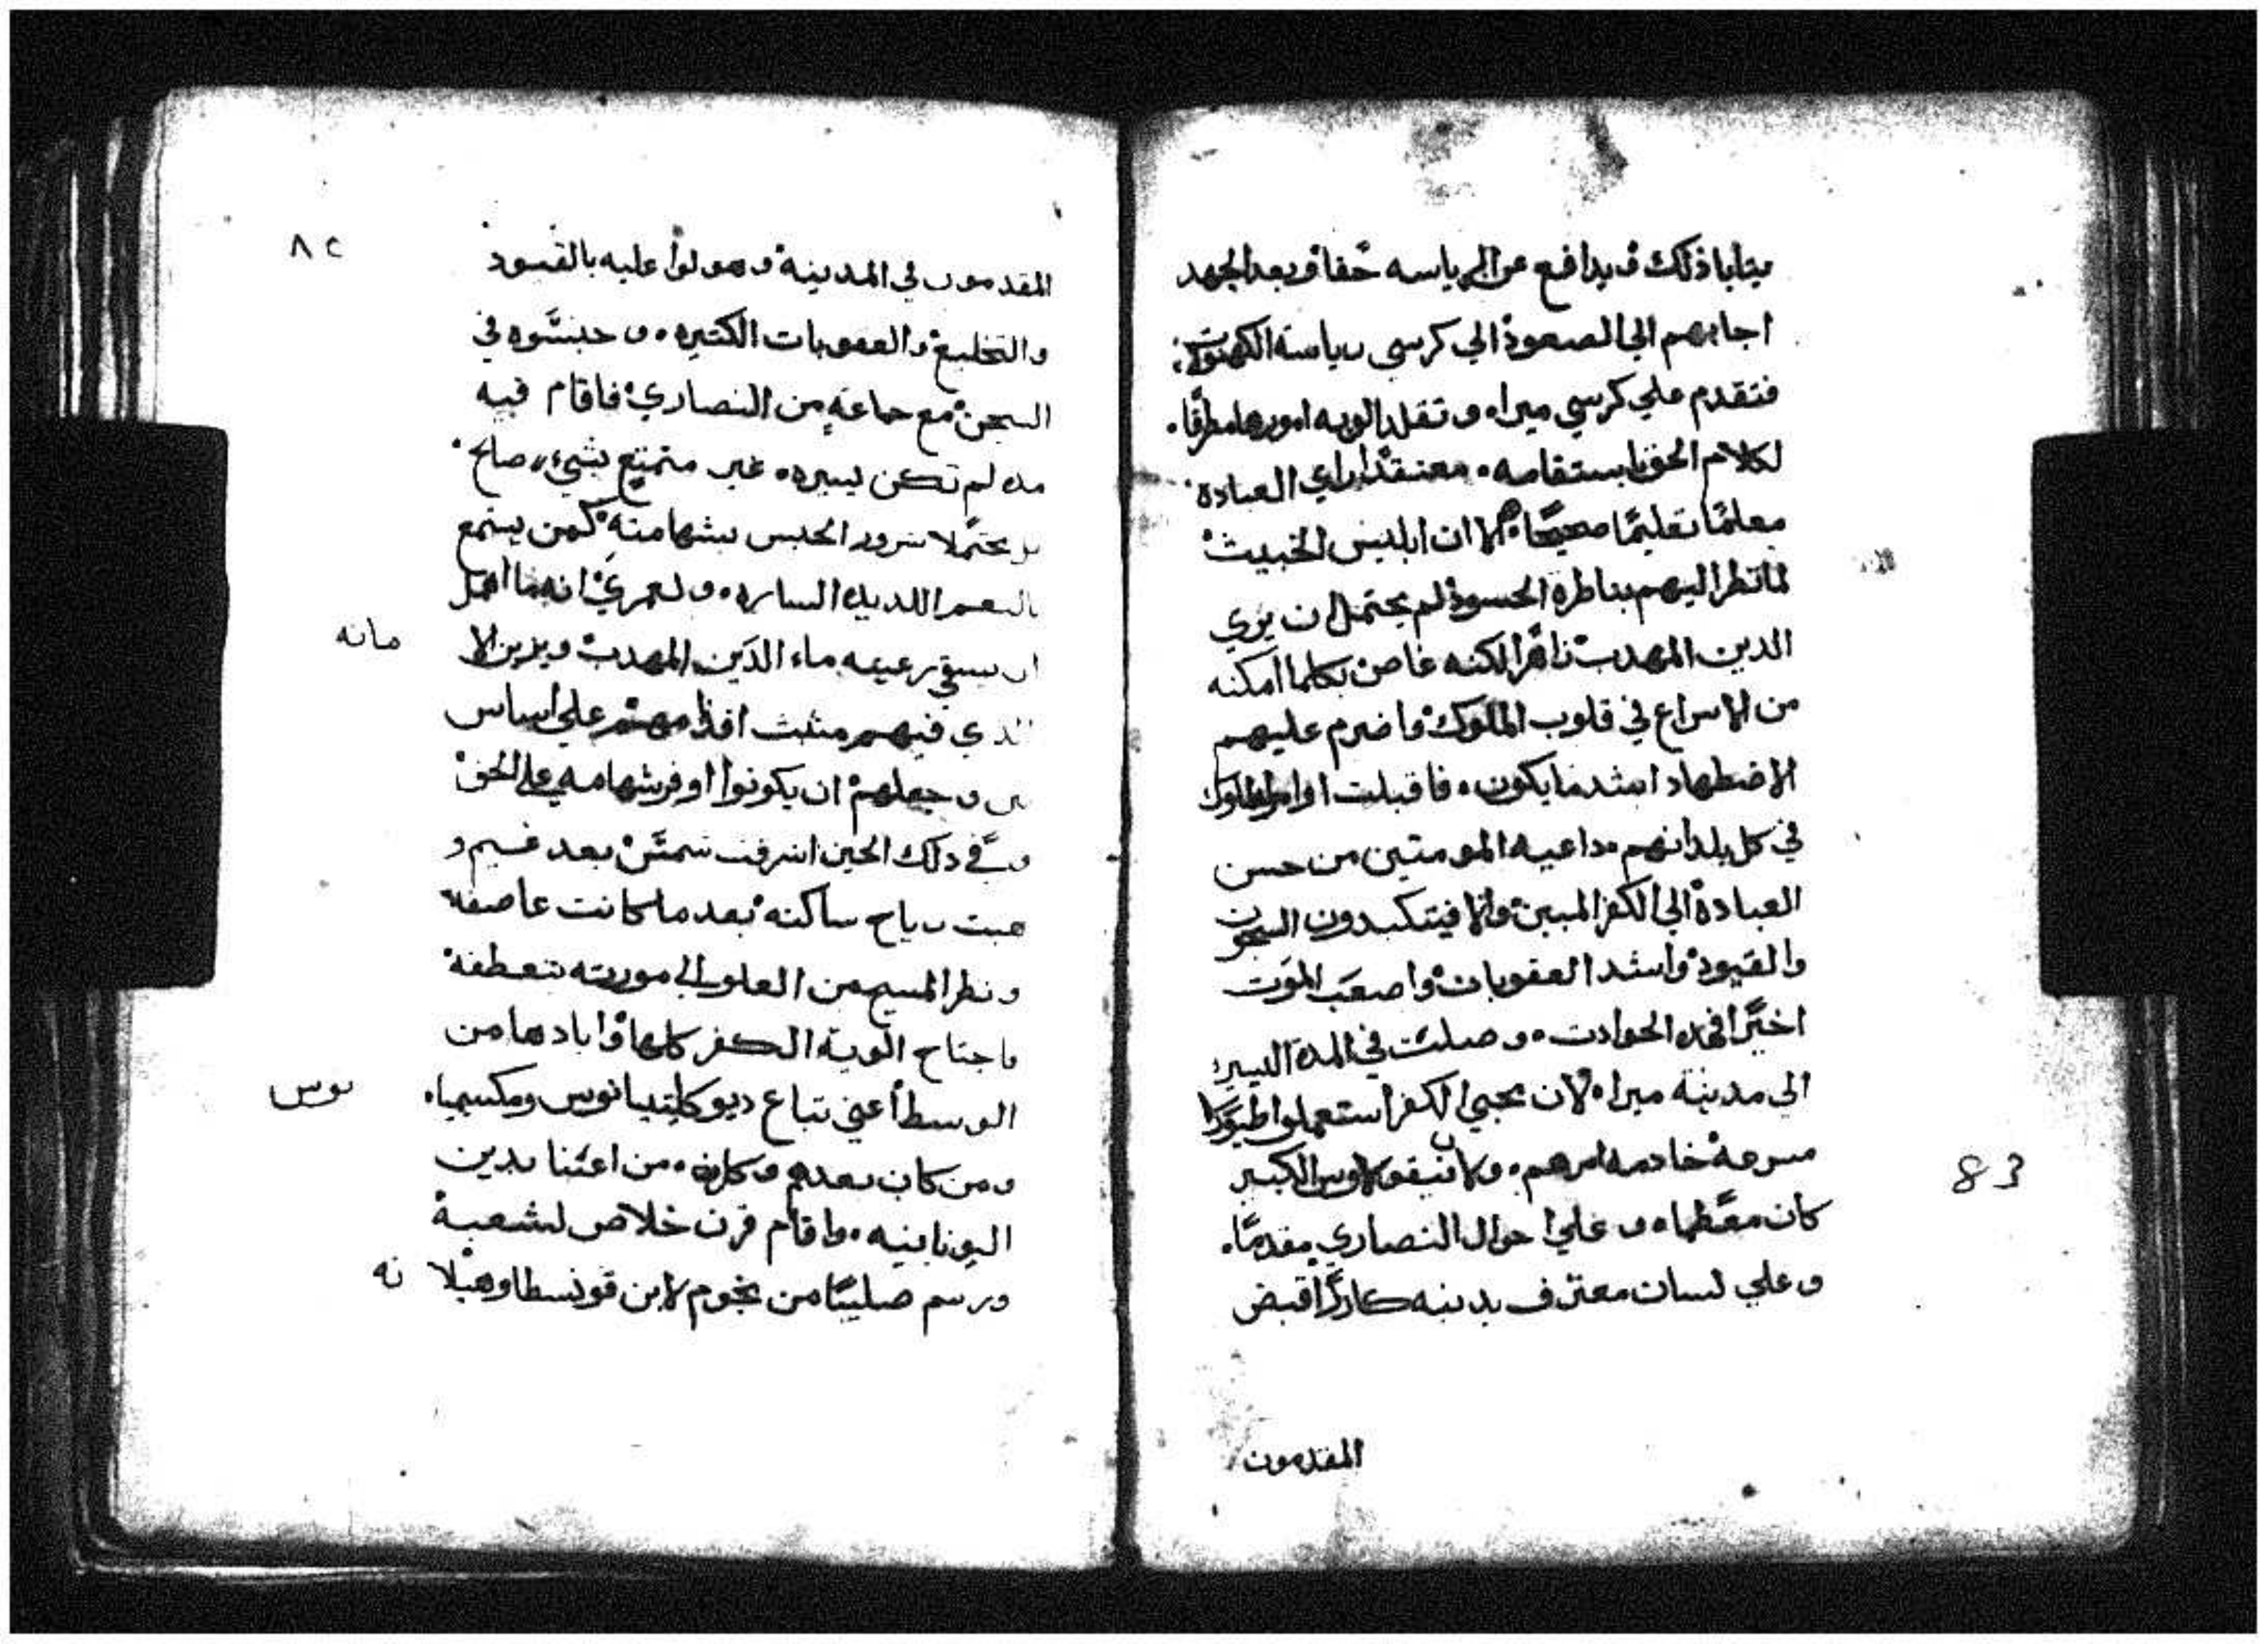 يتابا ذلك ويدافع عن الرياسه حقا وبعد الجهد
اجابهم الي الصعود الي كرسي رياسة الكهنوت
فتقدم علي كرسي ميرا، وتقلد الويه امورها مطرقا
لكلام الحق باستقامه. معتقدا براي العبادة
معلما تعليما صحيحا. الا ان ابليس الخبيث
لما نظر اليهم بناظره الحسود لم يحتمل ان يري
الدين المهدب زاهرا لكنه غاص بكلما امكنه
من الاسراع في قلوب الملوك واضرم عليهم
الاضطهاد اشد ما يكون. فاقبلت اوامر الملوك
في كل بلدانهم داعيه المومنين من حسن
العبادة الي الكفر المبين والا فيتكبدون السجون
والقيود واشد العقوبات واصعب الموت
اخيرا فهده الحوادت. وصلت في المدة اليسيره
الي مدينة ميرا، لان محبي الكفر استعملوا طيورا
مسرعة خادمه امرهم. ولان نيقولاوس الكبير
كان معظما. وعلي احوال النصاري مقدما.
وعلي لسان معترف بدينه كارزا قبض
المقدمون
83
٨٢
المقدمون في المدينة وهولوا عليه بالقيود
والتخليع والعقوبات الكتيره. وحبسوه في
السجن مع جماعة من النصاري فاقام فيه
مده لم تكن يسيره. غير متمتع بشيء صالح
بل محتملا شرور الحبس بشهامته كمن يستمتع
بالنعم اللديده الساره. ولعمري انه ما اهمل
ان يسقي رعيته ماء الدين المهدب ويزين الا
مانه
الدي فيهم مثبت اقدامهم علي اساس
وجعلهم ان يكونوا اوفر شهامه علي الحق
وفي دلك الحين اشرقت شمس بعد غيم و
هبت رياح ساكنه بعد ما كانت عاصفة
ونظر المسيح من العلو الي موريته بتعطفه
فاجتاح الوية الكفر كلها وابادها من
الوسط اعني تباع ديوكليتيانوس ومكسيميا
نوس
ومن كان بعدهم وكلمن اعتنا بدين
اليونانيه. واقام قرن خلاص لشعبه
ورسم صليبا من نجوم لابن قونسطا وهيلا
نه